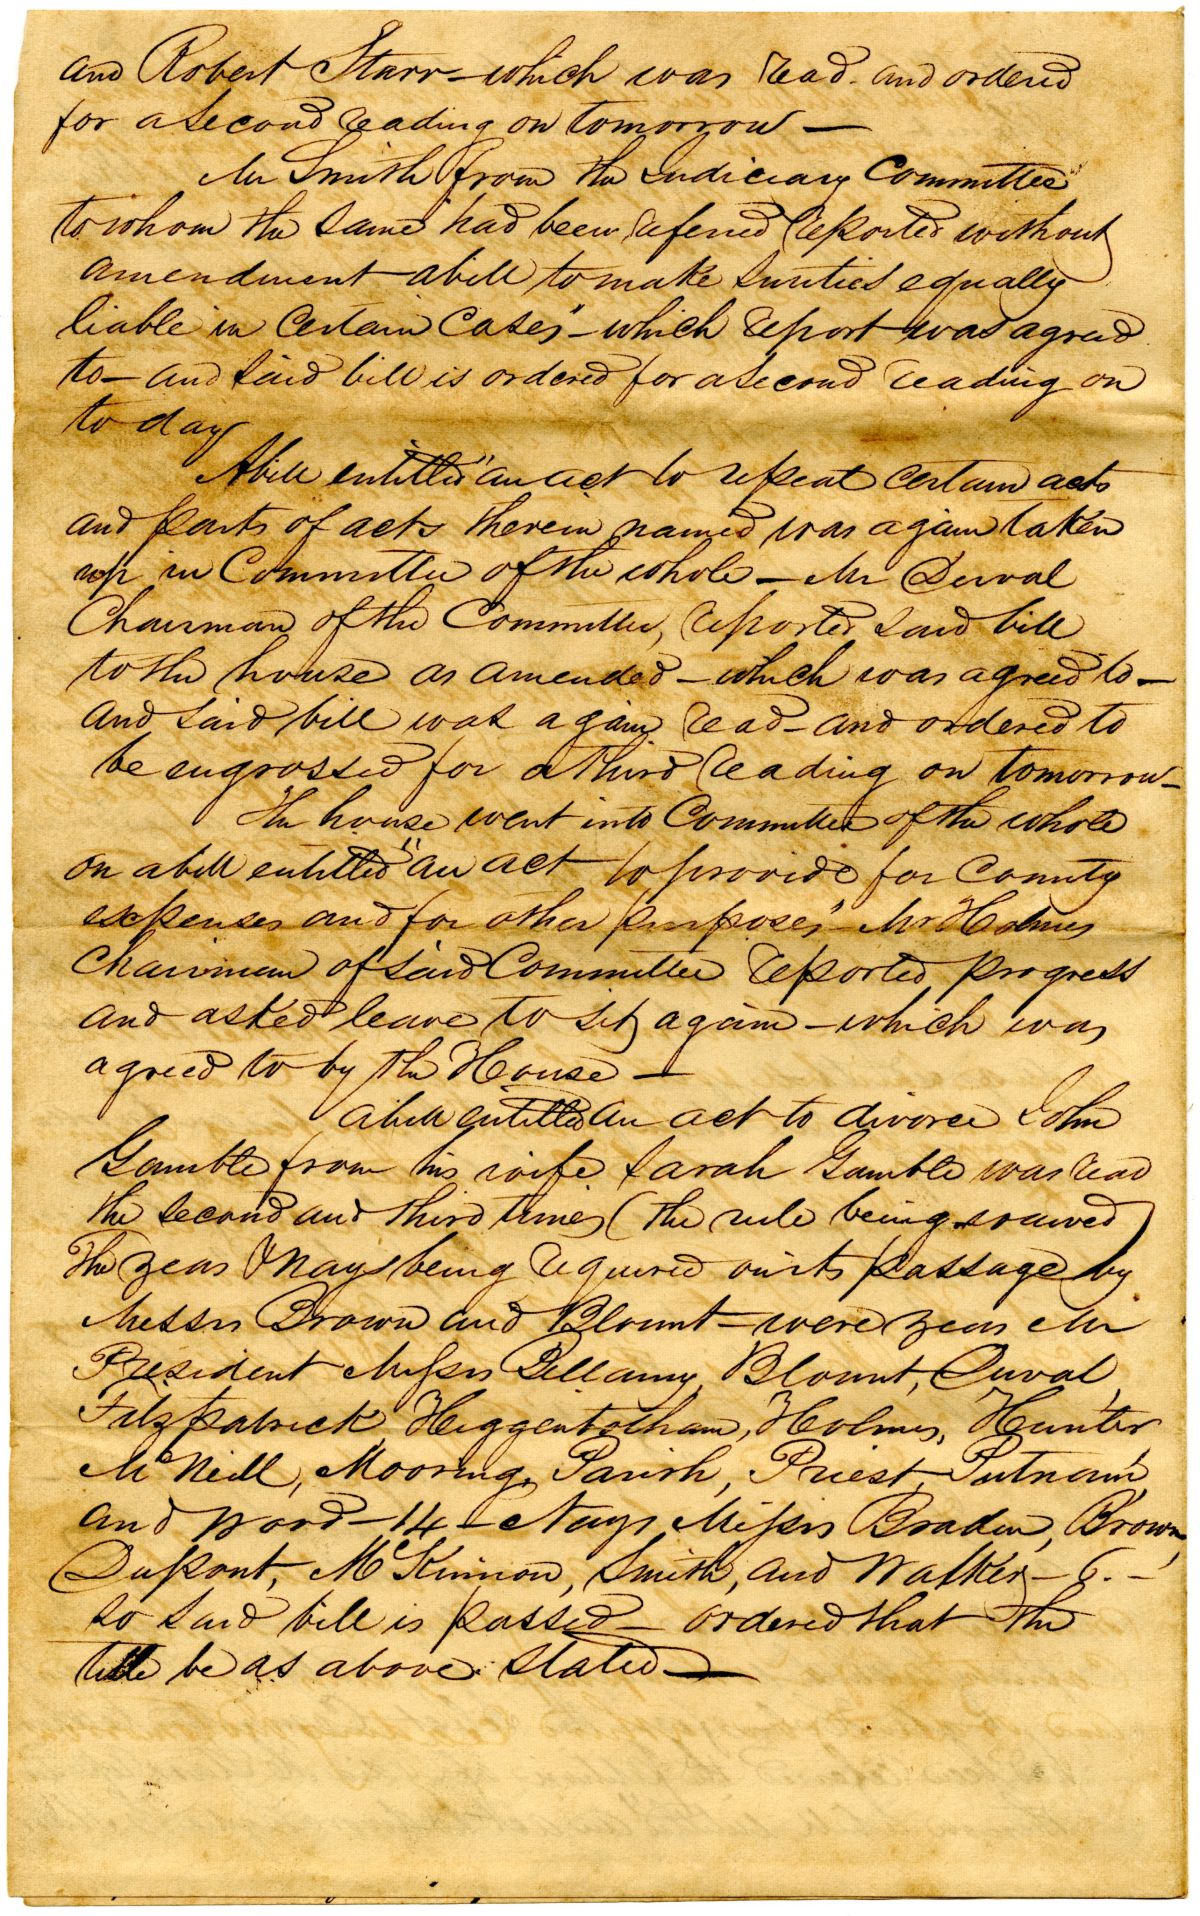 and Robert Starr - which was read and ordered
for a second reading on tomorrow —
Mr Smith from the Judiciary Committee
to whom the same had been refered reported without
amendment a bill to make Sureties equally
liable in certain cases" - which report was agreed
to - and said bill is ordered for a second reading on
to day
A bill entitled "an act to repeal certain acts
and parts of acts therein named was again taken
up in Committee of the whole - Mr Duval
Chairman of the Committee, reported said bill
to the house as amended - which was agreed to -
and said bill was again read - and ordered to
be engrossed for a third reading on tomorrow -
The house went into Committee of the whole
on a bill entitled "an act to provide for County
expenses and for other purposes" - Mr Holmes
Chairman of said Committee reported progress
and asked leave to sit again - which was
agreed to by the House —
a bill entitled an act to divorce John
Gamble from his wife Sarah Gamble was read
the second and third times (the rule being waived)
The yeas & Nays being required on its passage by
Messrs Brown and Blount - were yeas Mr
President Messrs Bellamy, Blount, Duval,
Fitzpatrick, Higgentotham, Holmes, Hunter
McNeill, Mooring, Parish, Priest, Putnam,
and Word - 14 - Nays Messrs Braden, Brown,
Dupont, McKinnon, Smith, and Walker - 6. -
so said bill is passed - ordered that the
title be as above stated —